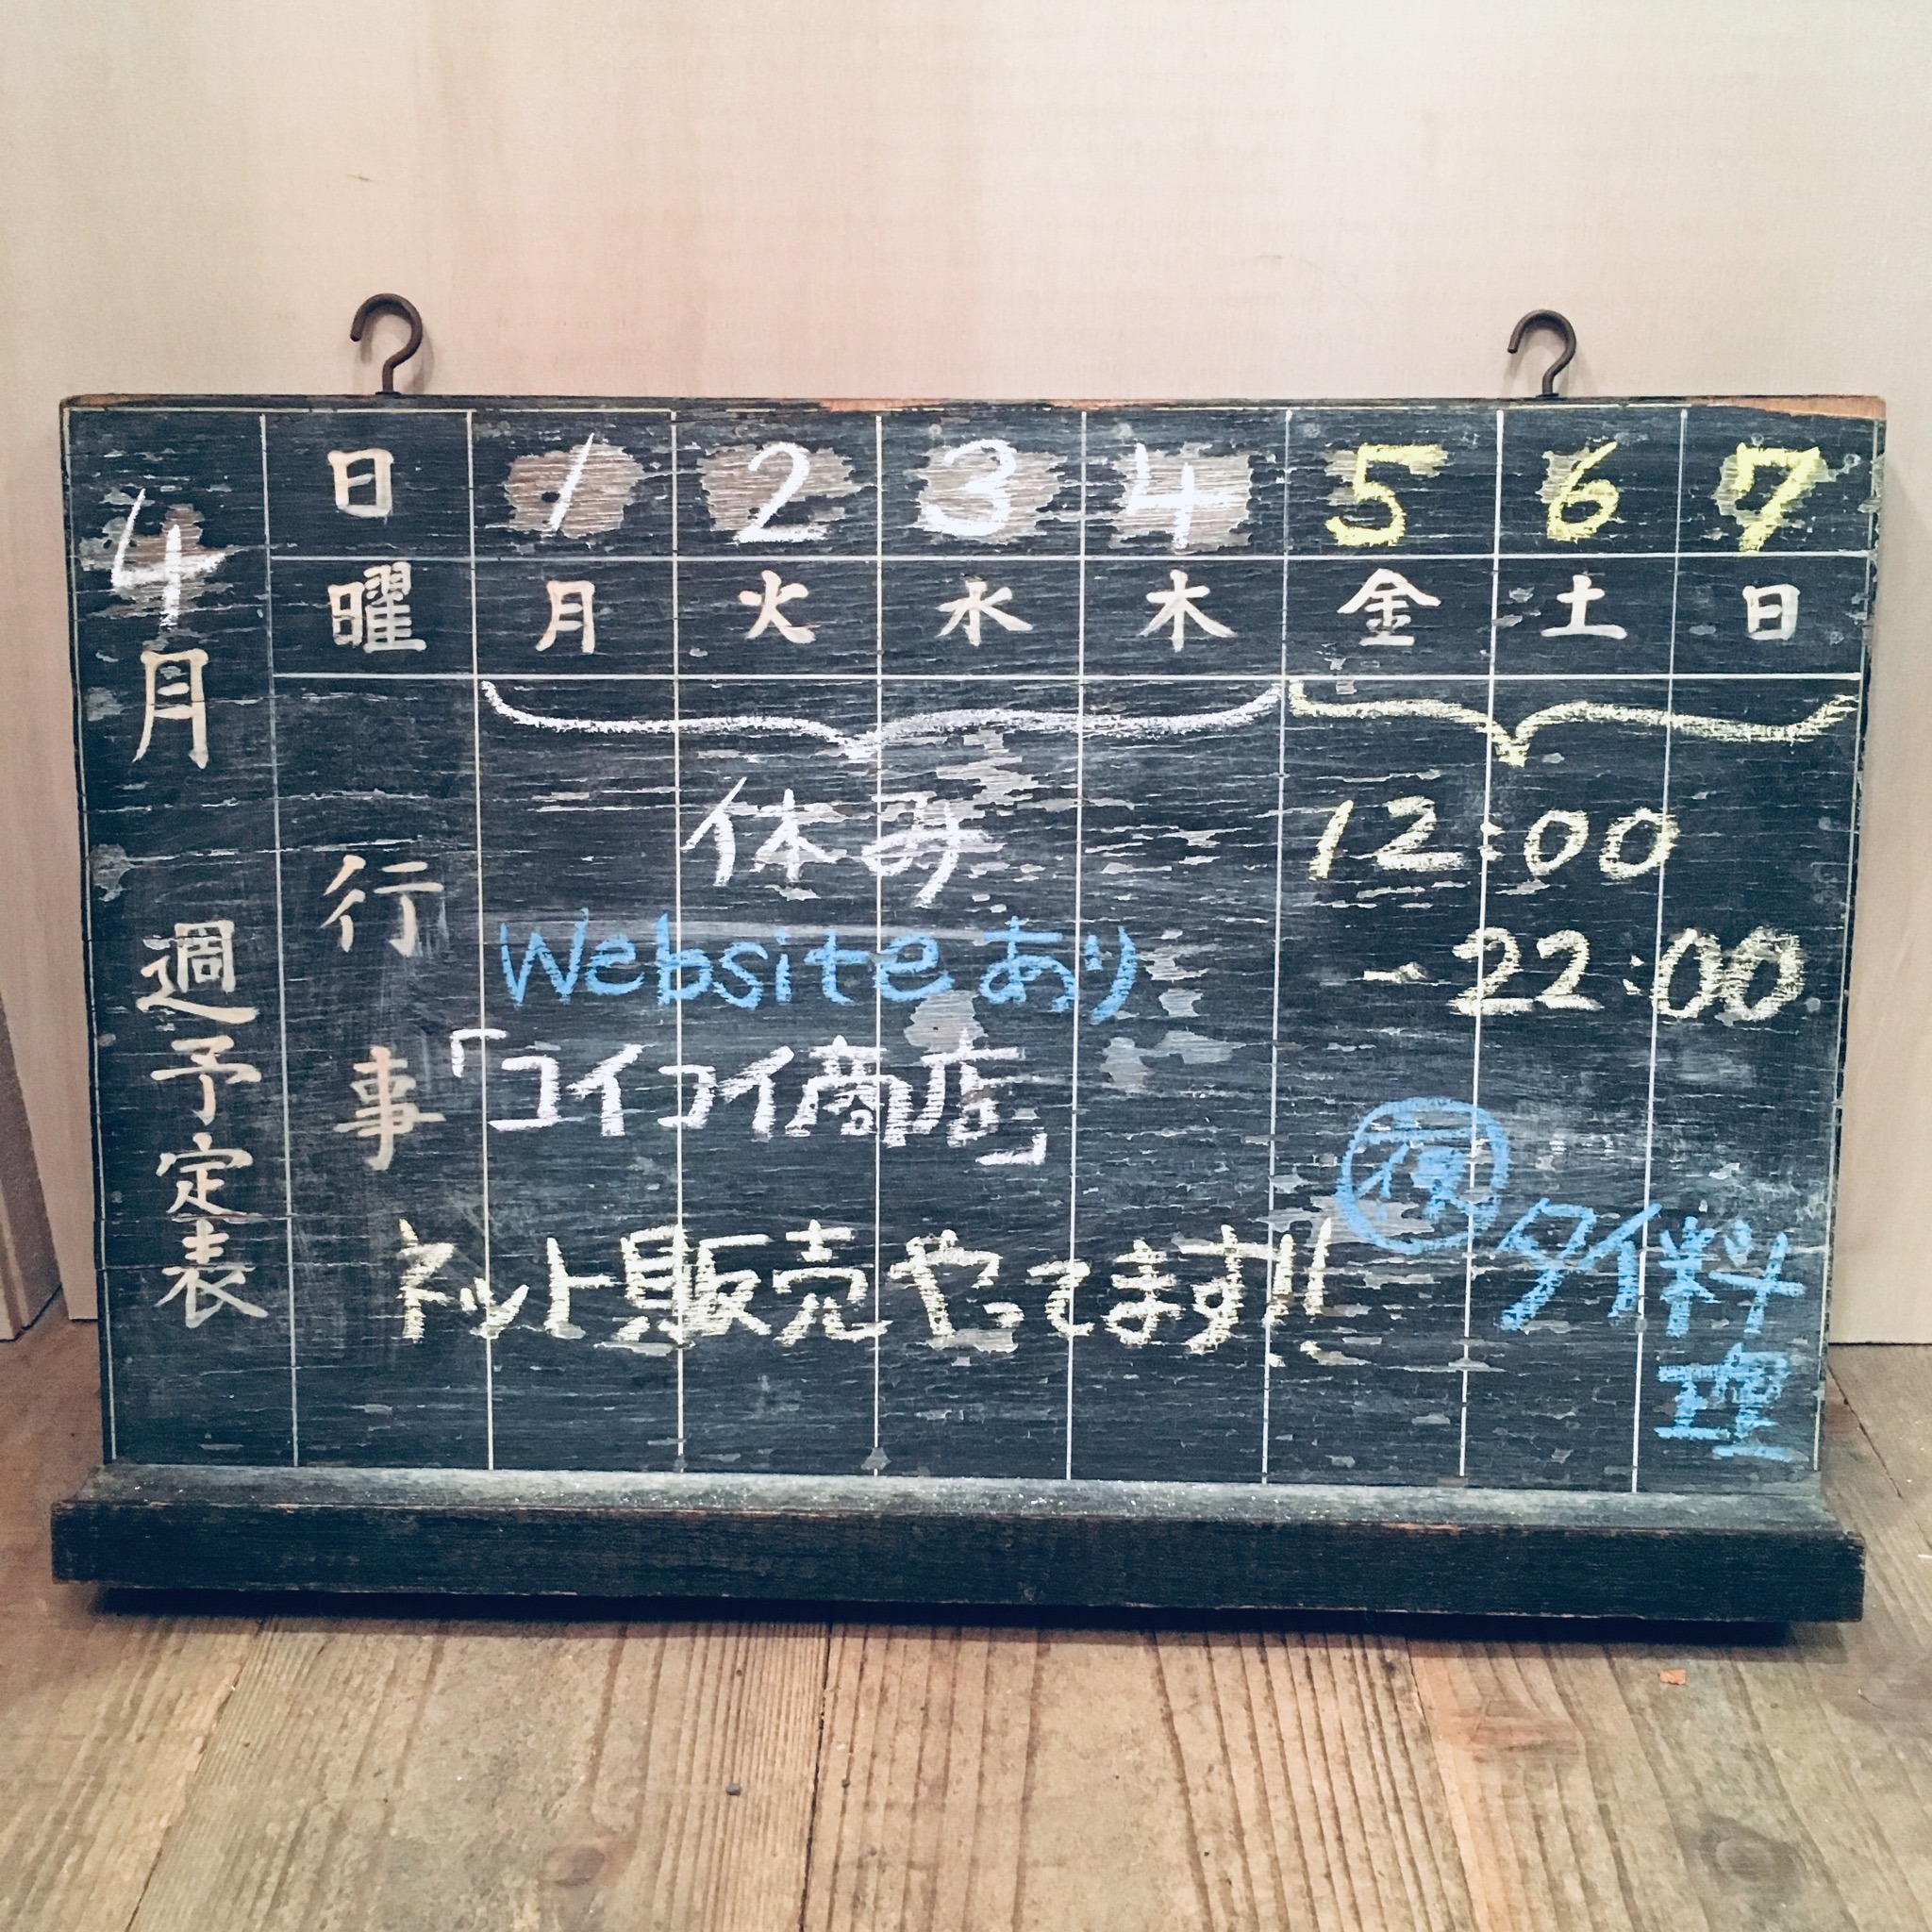 4月
週予定表
日 1 2 3 4 5 6 7
曜 月 火 水 木 金 土 日
行事
休み
Websiteあり
「コイコイ商店」
ネット販売やってます!!
12:00
-22:00
夜
タイ料
理